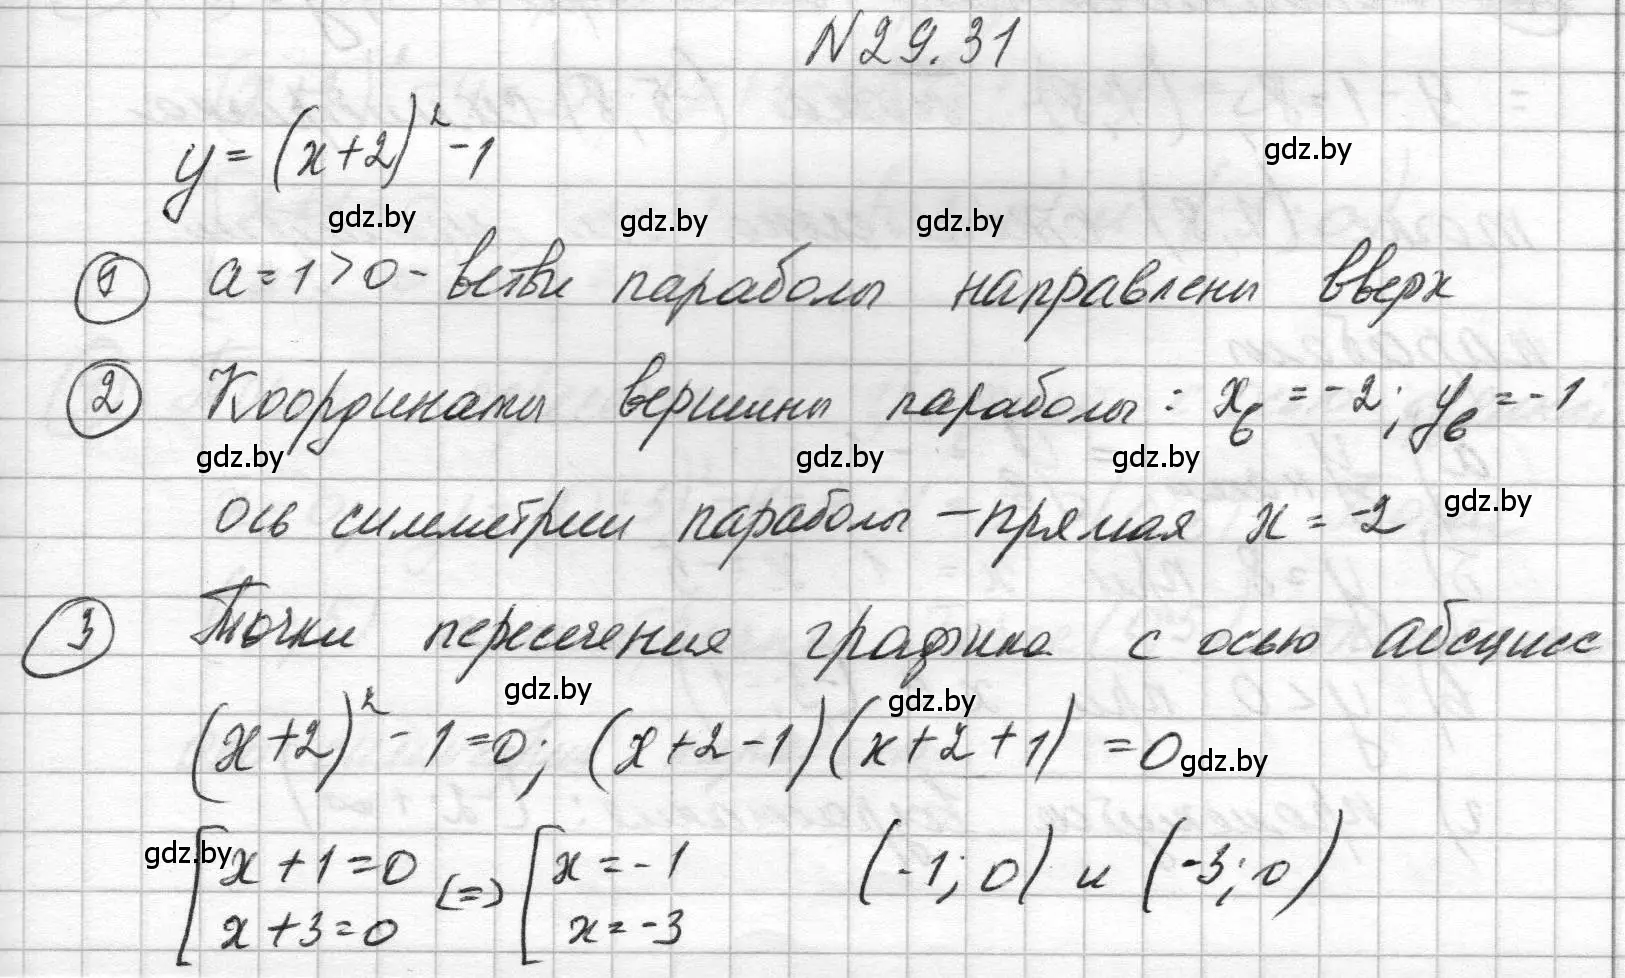 N29.31
y=(x+2)²-1
gdz.by
gdz.by gdz.by gdz.by
① a=1>0 - ветви параболы направлены вверх
② Координаты вершины параболы: xв = -2; yв = -1
gdz.by gdz.by gdz.by
ось симметрии параболы - прямая x = -2 gdz.by
③ Точки пересечения графика с осью абсцисс
gdz.by gdz.by
(x+2)² - 1 = 0; (x+2-1)(x+2+1) = 0 gdz.by
gdz.by [x+1=0 <=> [x=-1 (-1; 0) и (-3; 0)
x+3=0 x=-3